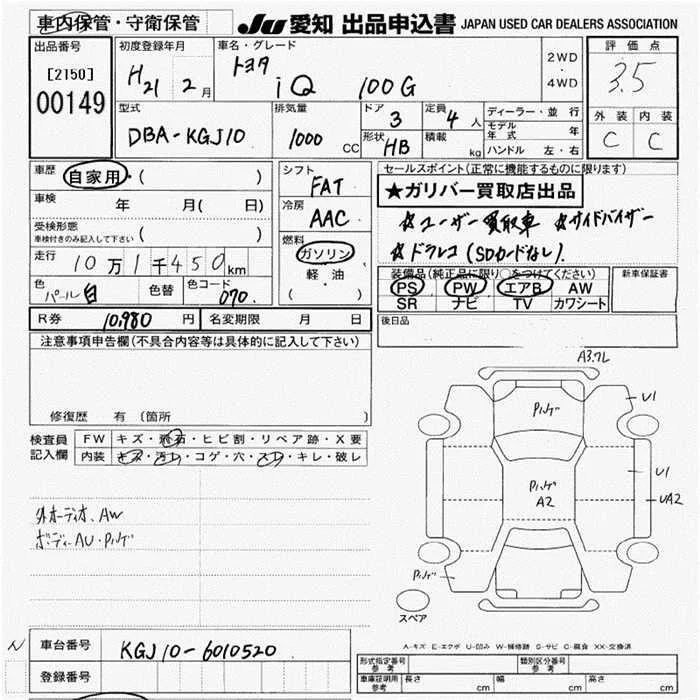 車内保管・守衛保管 JU 愛知 出品申込書 JAPAN USED CAR DEALERS ASSOCIATION
出品番号 初度登録年月 車名・グレード 評価点
[2150] H21 2月 トヨタ iQ 100G 2WD・4WD 3.5
00149
型式 排気量 ドア 3 定員 4人 ディーラー・並行 外装 内装
DBA-KGJ10 1000CC 形状 HB 積載 kg モデル年式 年 C C
ハンドル 左・右
車歴 自家用・( ) シフト FAT セールスポイント(正常に機能するものに限ります)
★ガリバー買取店出品
車検 年 月( 日) 冷房 AAC ☆ユーザー買取車 ☆サイドバイザー
受検形態 車検付きのみ記入して下さい ( ) ☆ドラレコ(SDカードなし).
走行 10万1千450km 燃料 ガソリン・軽油 ( )
装備品(純正品に限り○をつけてください) 新車保証書
色 パール白 色替 色コード 070. PS PW エアB AW
SR ナビ TV カワシート
R券 10,980円 名変期限 月 日 後日品
注意事項申告欄(不具合内容等は具体的に記入して下さい)
修復歴 有 〔箇所
検査員記入欄 FW キズ・飛石・ヒビ割・リペア跡・X要
内装 キズ・汚レ・コゲ・穴・スレ・キレ・破レ
外オーディオ、AW
ボディーAU・Pハゲ
A3.7L
Pハゲ U1
Pハゲ A2 U1 UA2
Pハゲ
スペア
A-キズ E-エクボ U-凹み W-補修跡 S-サビ C-腐食 XX-交換済
車台番号 KGJ10-6010520
登録番号
形式指定番号 参考 類別区分番号 参考
車庫証明用 参考 長さ cm 幅 cm 高さ cm